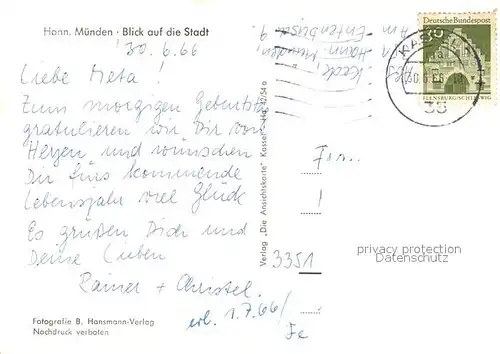 Hann. Münden · Blick auf die Stadt
30.6.66
Liebe Meta!
Zum morgigen Geburtstag
gratulieren wir Dir von
Herzen und wünschen
Dir fürs kommende
Lebensjahr viel Glück
Es grüßen Dich und
Deine Lieben
Rainer + Christel
erl. 1.7.66/
Fotografie B. Hansmann-Verlag
Nachdruck verboten
Verlag „Die Ansichtskarte" Kassel
Hann. Münden
Deutsche Bundespost
30
FLENSBURG/SCHLESWIG
35
Frn.
!
3351
privacy protection
Datenschutz